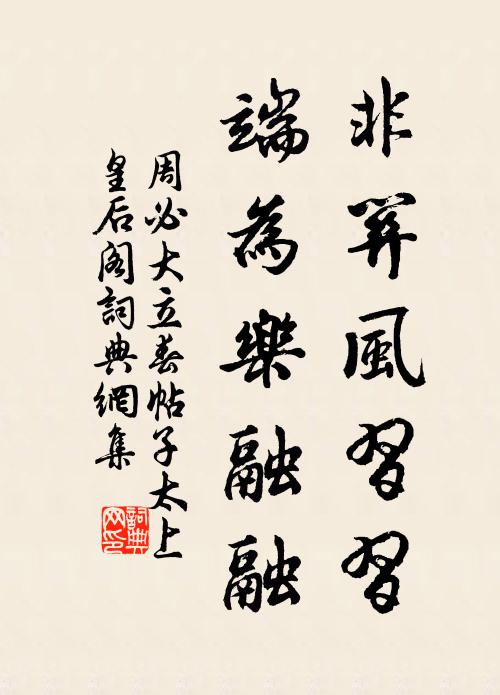 非關風習習
端為樂融融
周必大立春帖子太上
皇后閣詞典網集
詞典
网印